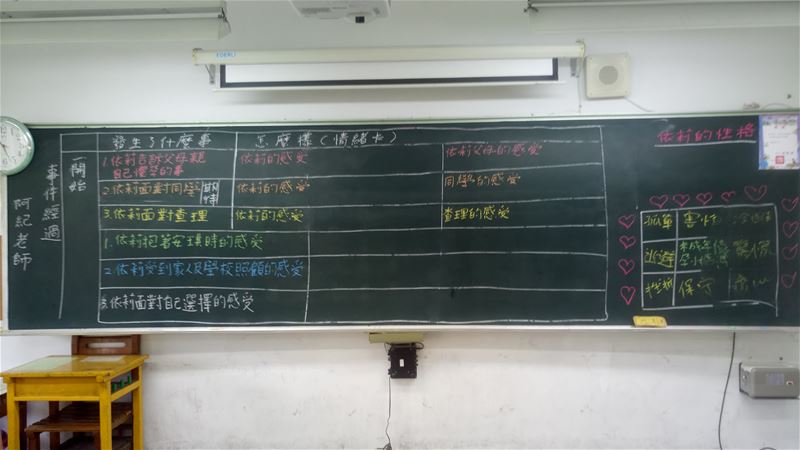 EDERLI
發生了什麼事
怎麼樣（情緒卡）
依莉的性格
一開始
事件經過
阿記老師
1.依莉告訴父母親
自己懷孕的事
依莉的感受
依莉父母的感受
2.依莉面對同學
依莉的感受
同學的感受
3.依莉面對查理
依莉的感受
查理的感受
1.依莉抱著安琪時的感受
2.依莉受到家人及學校照顧的感受
3.依莉面對自己選擇的感受
孤單
逃避
保守